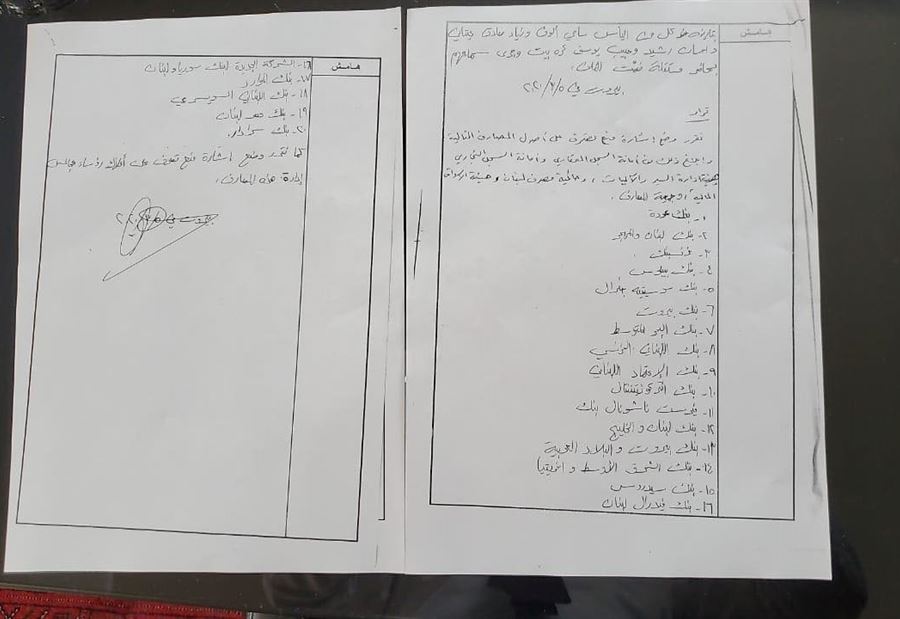 هامش
بتاريخه مثل كل من الياس سامي ألوف وزياد
وإحسان رشيد وحبيب يوسف وجرى سماعهم
بمحاضر مستقلة ضمت للملف.
بيروت في ٥/٣/٢٠٢٠
قرار
نقرر وضع إشارة منع تصرف على أصول المصارف التالية
وإبلاغ ذلك من أمانة السجل العقاري وأمانة السجل التجاري
وهيئة إدارة السير والآليات، وحاكمية مصرف لبنان وهيئة الأسواق
المالية وجمعية المصارف.
١- بنك عودة
٢- بنك لبنان والمهجر
٣- فرنسبنك
٤- بنك بيبلوس
٥- بنك سوسيتيه جنرال
٦- بنك بيروت
٧- بنك البحر المتوسط
٨- بنك اللبناني الفرنسي
٩- بنك الإعتماد اللبناني
١٠- بنك انتركونتيننتال
١١- فيرست ناشونال بنك
١٢- بنك لبنان والخليج
١٣- بنك بيروت والبلاد العربية
١٤- بنك الشرق الأوسط وافريقيا
١٥- بنك سيدروس
١٦- بنك فدرال لبنان
هامش
١٦- الشركة الجديدة لبنك سوريا ولبنان
١٧- بنك الموارد
١٨- بنك اللبناني السويسري
١٩- بنك مصر لبنان
٢٠- بنك سرادار.
كما نقرر وضع إشارة منع تصرف على أملاك رؤساء مجالس
إدارة هذه المصارف.
بيروت في ٥/٣/٢٠٢٠